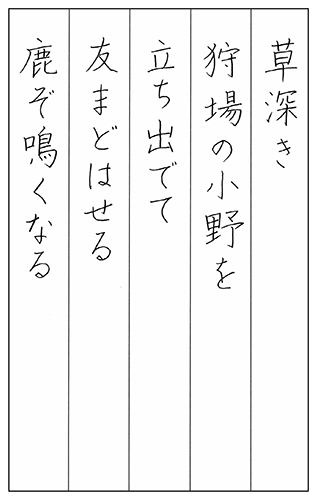 草深き
狩場の小野を
立ち出でて
友まどはせる
鹿ぞ鳴くなる